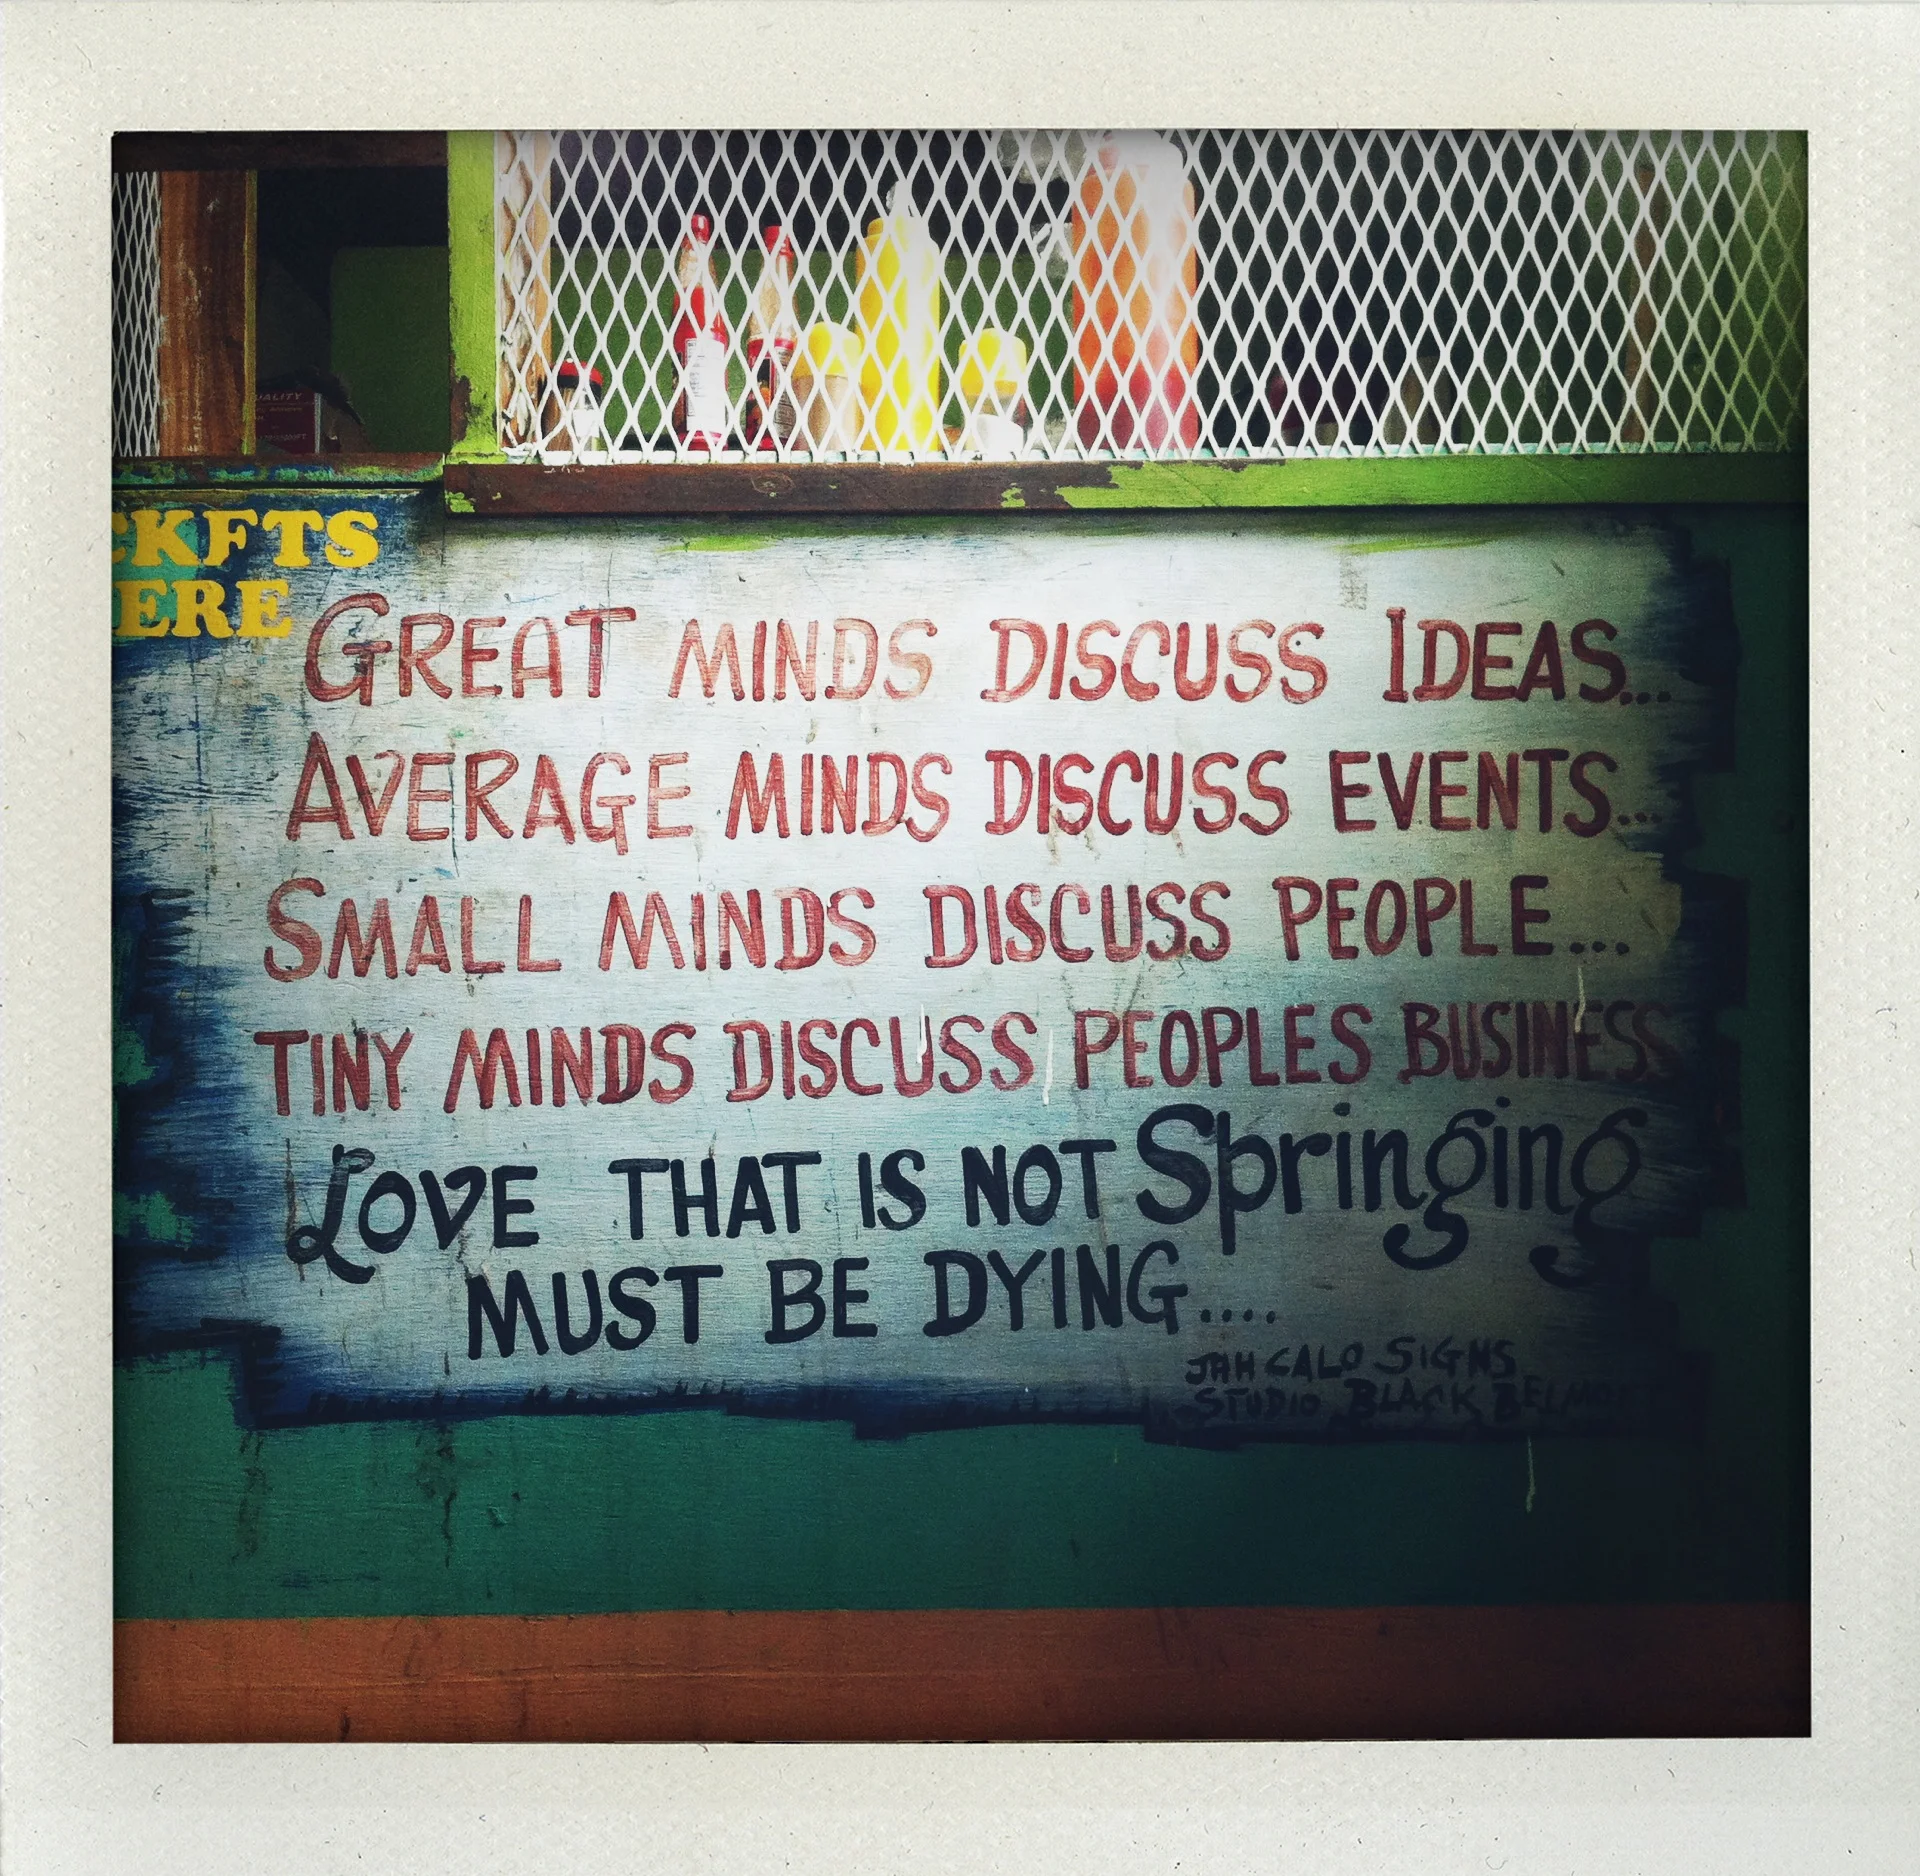 UALITY
CKETS
ERE
GREAT MINDS DISCUSS IDEAS...
AVERAGE MINDS DISCUSS EVENTS...
SMALL MINDS DISCUSS PEOPLE...
TINY MINDS DISCUSS PEOPLES BUSINESS
LOVE THAT IS NOT Springing
MUST BE DYING....
JAH CALO SIGNS
STUDIO BLACK